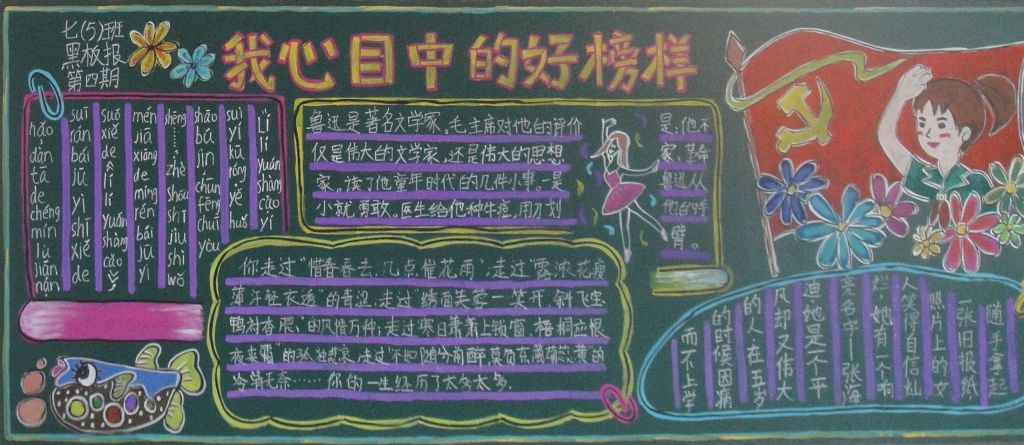 七(5)班
黑板报
第四期
我心目中的好榜样
lí lí yuán shàng cǎo
suí yì kū róng yě huǒ
shāo bú jìn chūn fēng chuī yòu
shēng …… zhè shǒu shī jiù shì wǒ
mén jiā xiāng de míng rén bái jū yì
suǒ xiě de lí lí yuán shàng cǎo
suī rán bái jū yì shī xiě de
hǎo dàn tā de chéng mín lù jiān nán
鲁迅是著名文学家。毛主席对他的评价
仅是伟大的文学家,还是伟大的思想
家。读了他童年时代的几件小事。一是
小就勇敢。医生给他种牛痘,用刀划
是:他不
家、革命
鲁迅从
他的
臂。
你走过“惜春春去,几点催花雨”;走过“露浓花瘦
薄汗轻衣透”的青涩;走过“绣面芙蓉一笑开,斜飞宝
鸭衬香腮”的风情万种;走过“寒日萧萧上锁窗,梧桐应恨
夜来霜”的孤独悲哀;走过“不如随分尊前醉,莫负东篱菊蕊黄”的
冷清无奈……你的一生经历了太多太多。
随手拿起
一张旧报纸
照片上的女
人笑得自信灿
烂,她有一个响
亮名字——张海
迪,她是一个平
凡却又伟大
的人,在五岁
的时候因病
而不上学